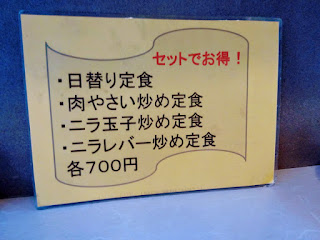 セットでお得！
・日替り定食
・肉やさい炒め定食
・ニラ玉子炒め定食
・ニラレバー炒め定食
各７００円